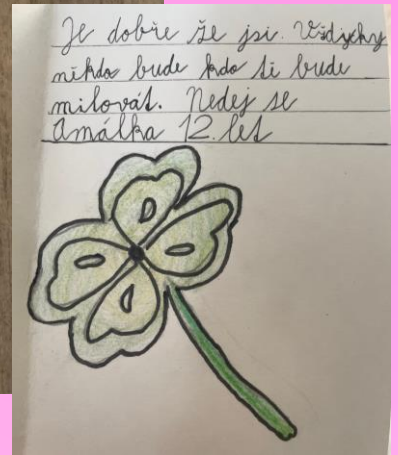 Je dobře že jsi. Vždycky
někdo bude kdo ti bude
milovat. Nedej se
Amálka 12. let